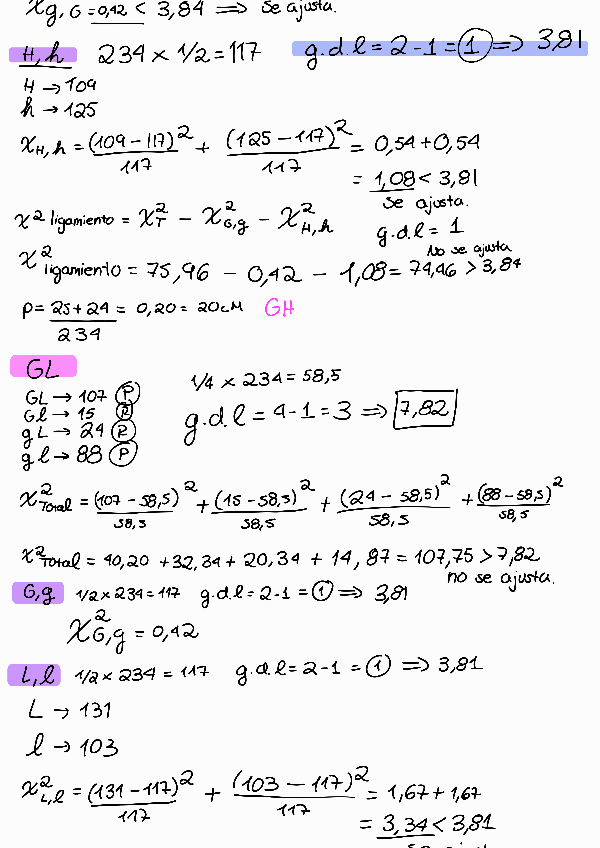 χg, G = 0,42 < 3,84 ⟹ Se ajusta.
H, h 234 × 1/2 = 117 g.d.l = 2 - 1 = 1 ⟹ 3,81
H → 109
h → 125
χH, h = (109 - 117)²/117 + (125 - 117)²/117 = 0,54 + 0,54
= 1,08 < 3,81
Se ajusta.
χ² ligamiento = χ²T - χ²G,g - χ²H,h g.d.l = 1
No se ajusta
χ² ligamiento = 75,96 - 0,42 - 1,08 = 74,46 > 3,84
P = 25 + 24/234 = 0,20 = 20 cM GH
GL
1/4 × 234 = 58,5
GL → 107 P
Gl → 15 R
gL → 24 R
gl → 88 P
g.d.l = 4 - 1 = 3 ⟹ 7,82
χ²Total = (107 - 58,5)²/58,5 + (15 - 58,5)²/58,5 + (24 - 58,5)²/58,5 + (88 - 58,5)²/58,5
χ²Total = 40,20 + 32,34 + 20,34 + 14,87 = 107,75 > 7,82
no se ajusta.
G,g 1/2 × 234 = 117 g.d.l = 2 - 1 = 1 ⟹ 3,81
χ²G,g = 0,42
L,l 1/2 × 234 = 117 g.d.l = 2 - 1 = 1 ⟹ 3,81
L → 131
l → 103
χ²L,l = (131 - 117)²/117 + (103 - 117)²/117 = 1,67 + 1,67
= 3,34 < 3,81